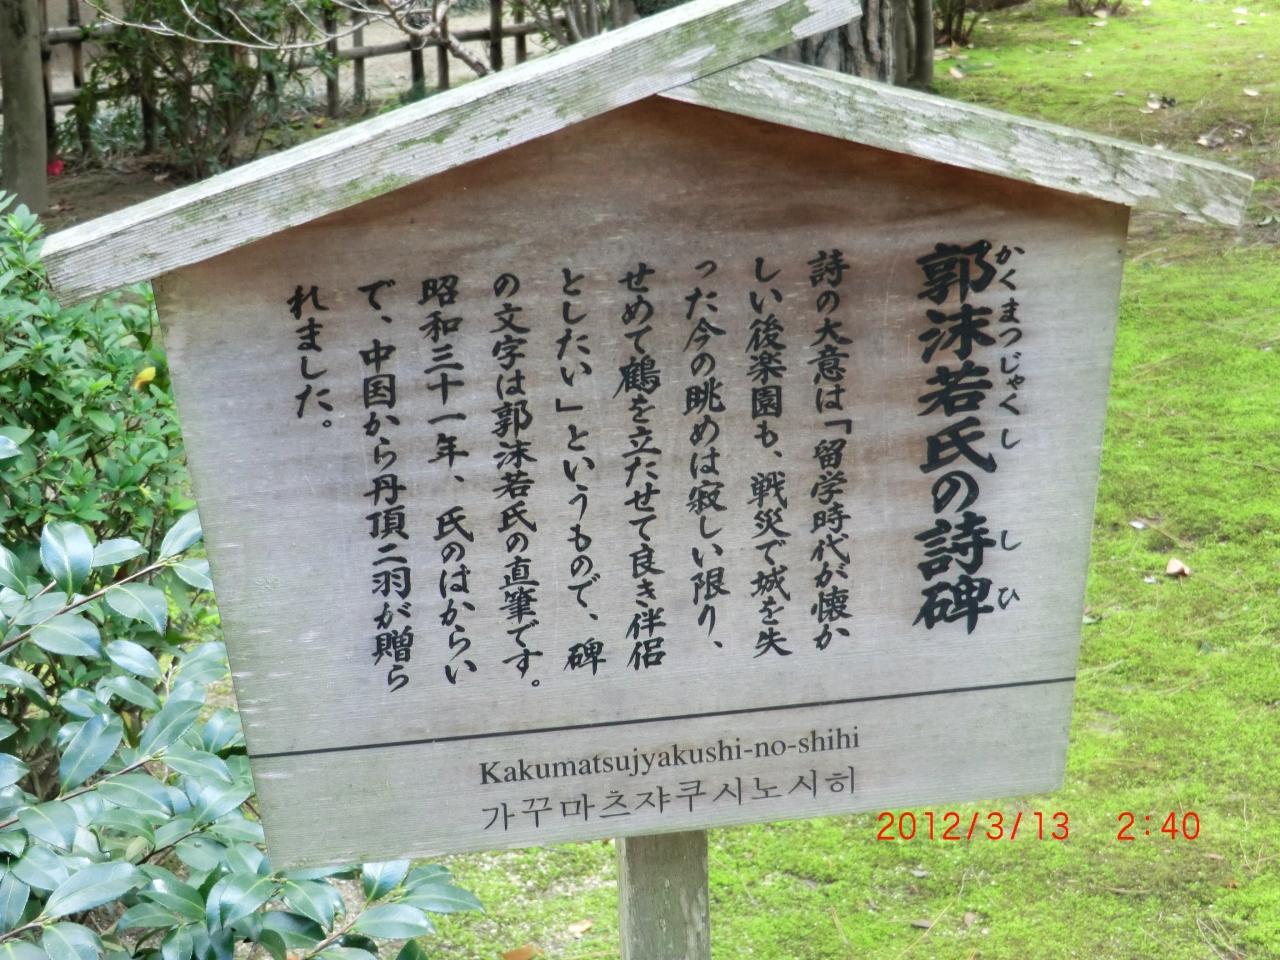 郭沫若氏の詩碑
かくまつじゃくし しひ
詩の大意は「留学時代が懐か
しい後楽園も、戦災で城を失
った今の眺めは寂しい限り、
せめて鶴を立たせて良き伴侶
としたい」というもので、碑
の文字は郭沫若氏の直筆です。
昭和三十一年、氏のはからい
で、中国から丹頂二羽が贈ら
れました。
Kakumatsujyakushi-no-shihi
가꾸마츠쟈쿠시노시히
2012/3/13 2:40